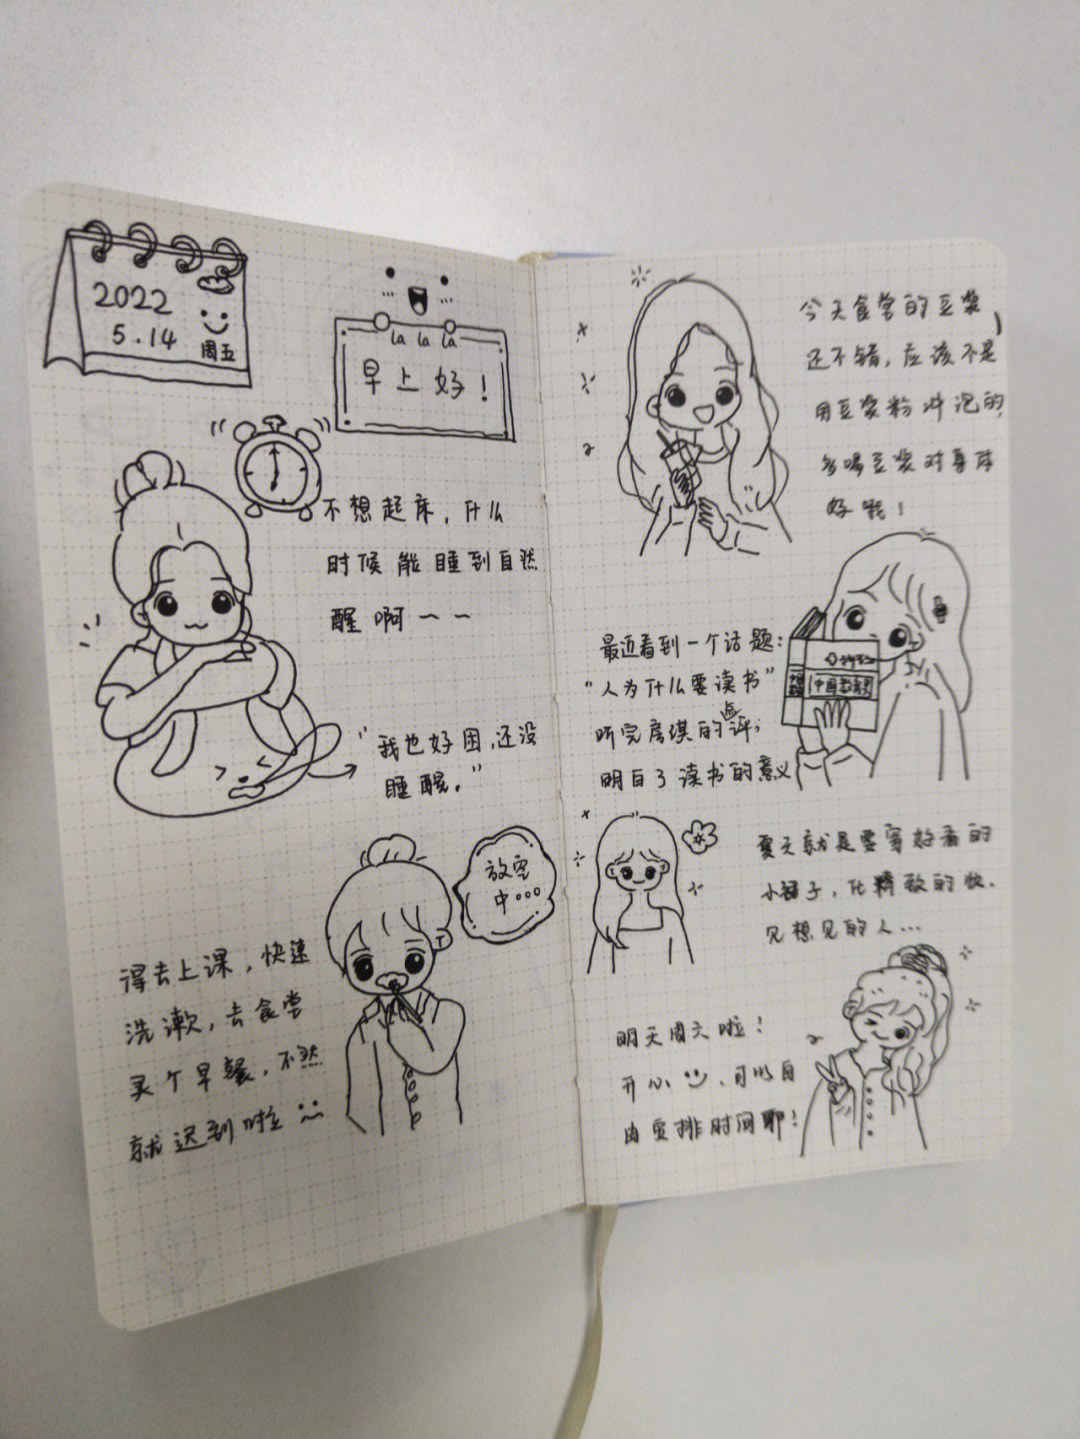 2022
5.14
周五
la la la
早上好!
不想起床,什么
时候能睡到自然
醒啊~~
"我也好困,还没
睡醒。"
放空
中...
得去上课,快速
洗漱,去食堂
买个早餐,不然
就迟到啦
今天食堂的豆浆
还不错,应该不是
用豆浆粉冲泡的,
多喝豆浆对身体
好哦!
最近看到一个话题:
"人为什么要读书"
听完房琪的点评,
明白了读书的意义
中国教育
夏天就是要穿好看的
小裙子,化精致的妆,
见想见的人...
明天周六啦!
开心,可以自
由安排时间耶!